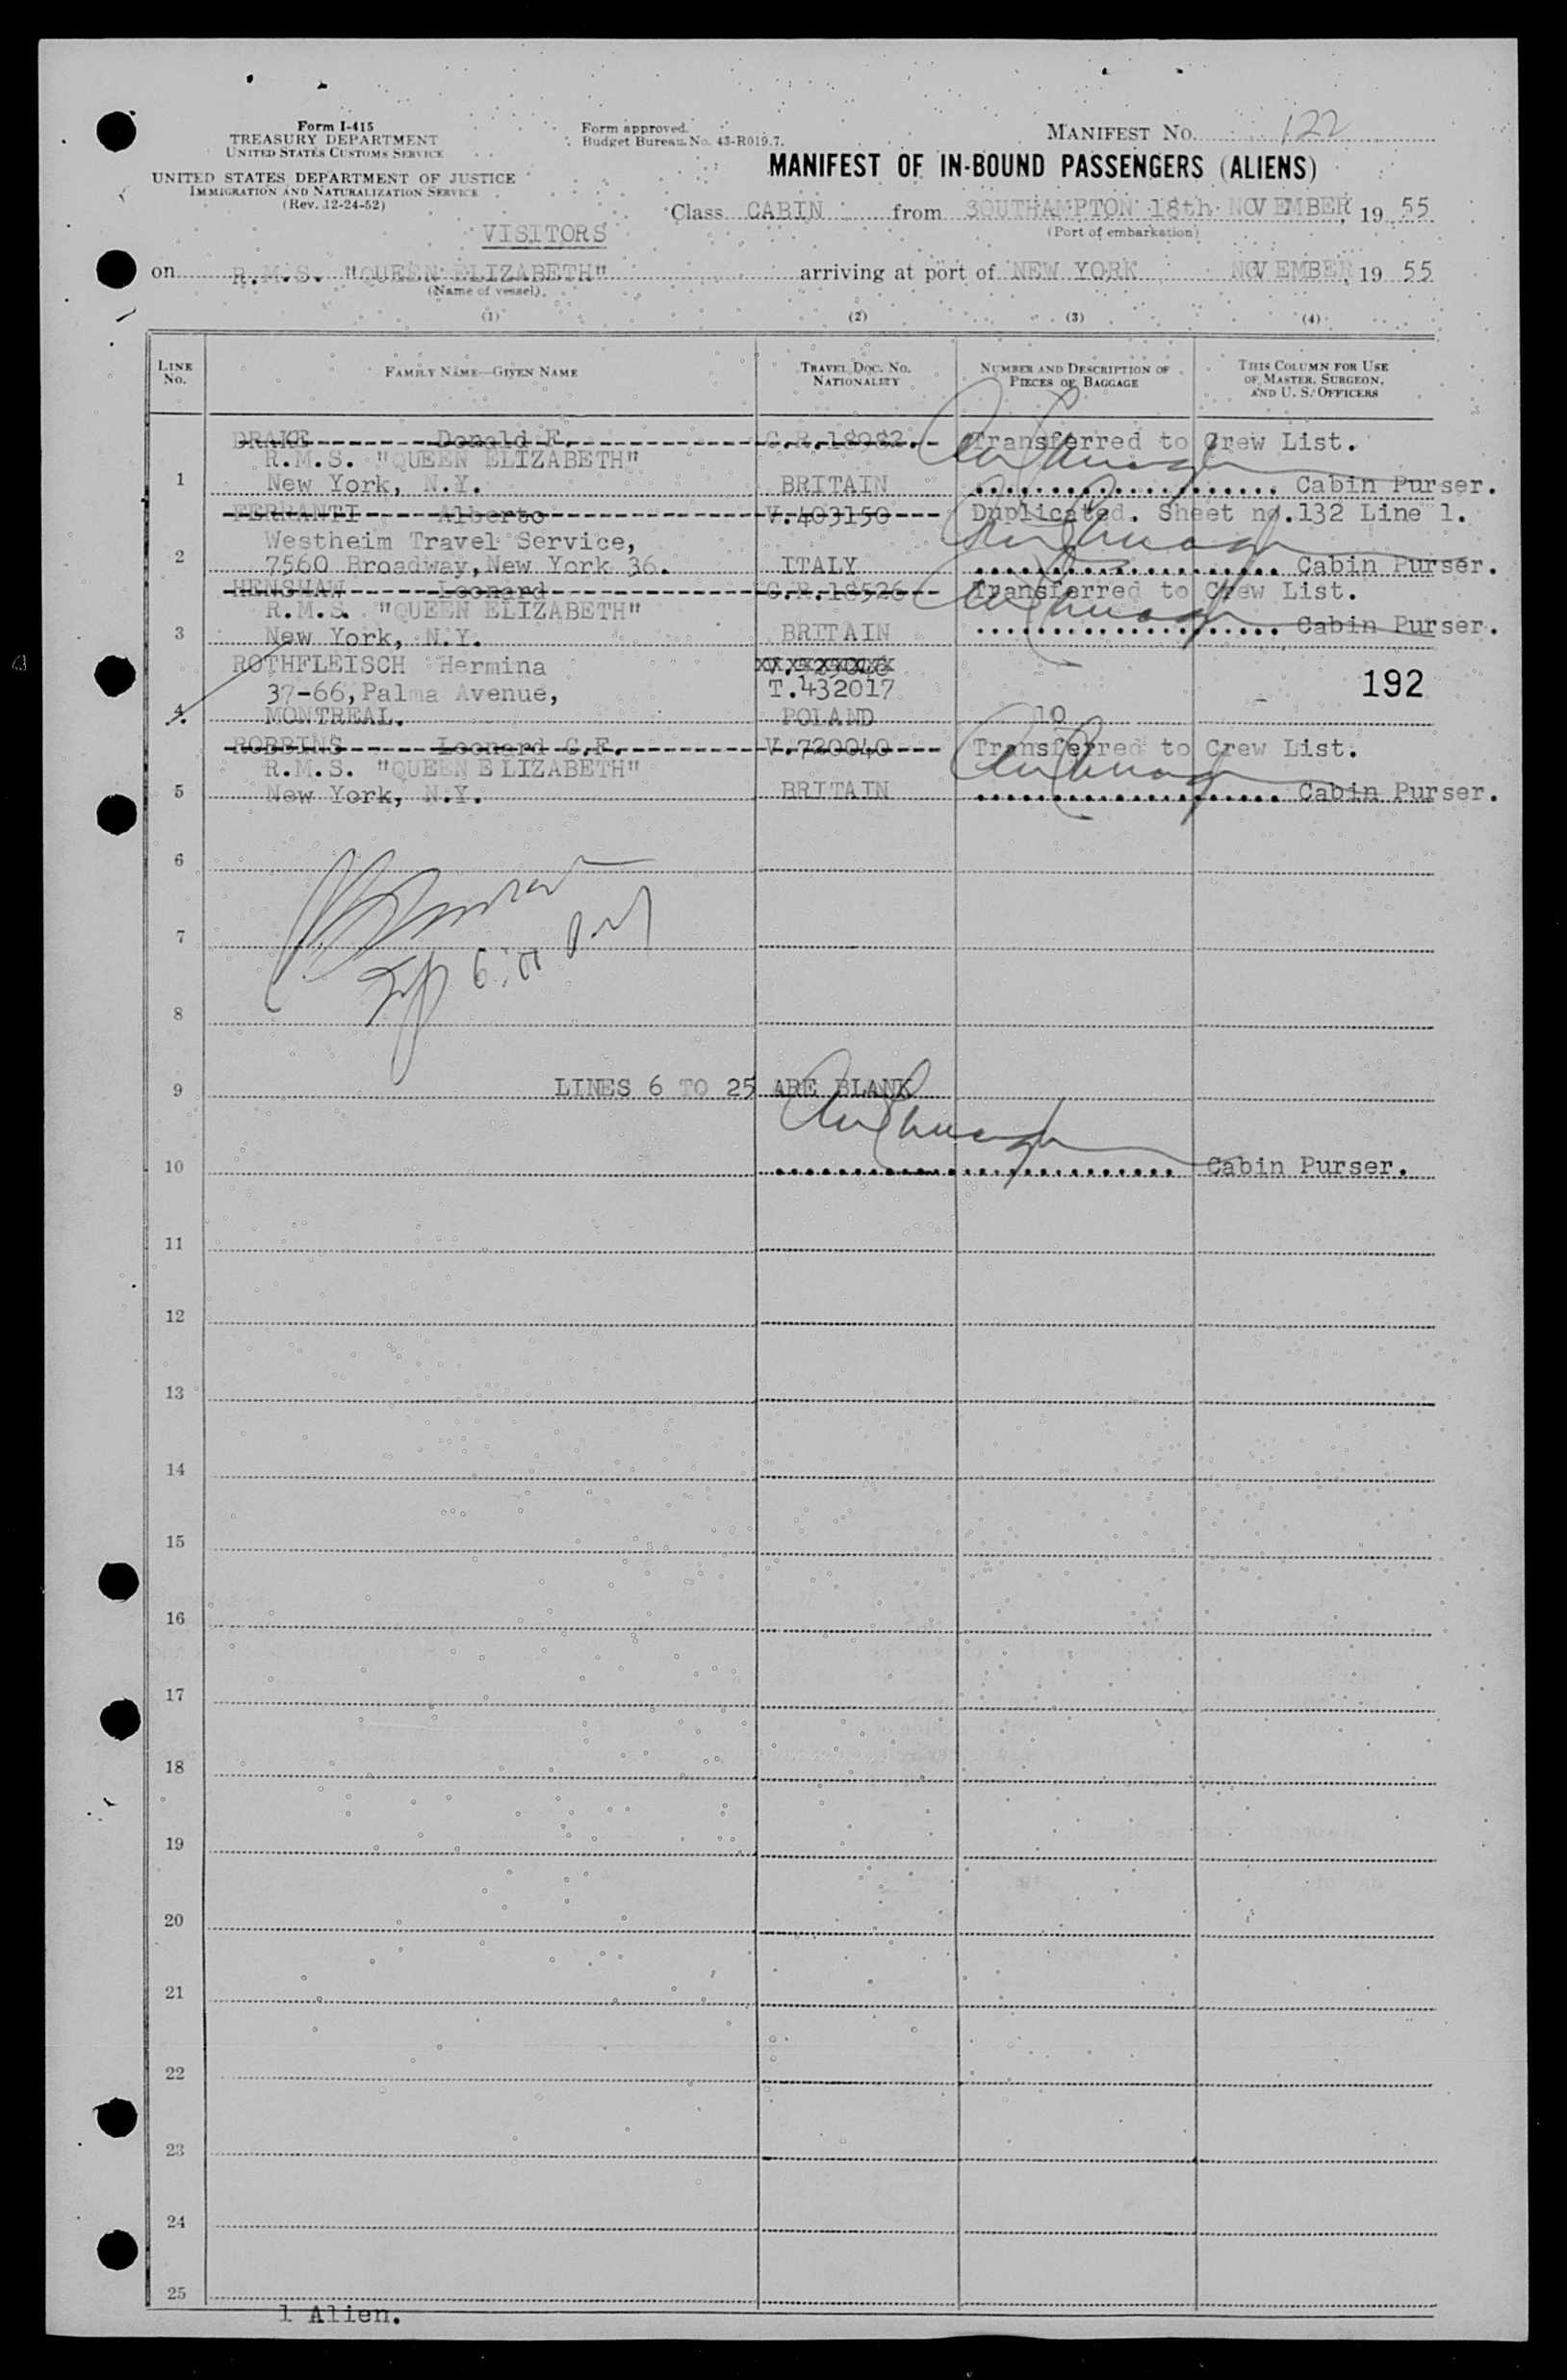 Form I-415
TREASURY DEPARTMENT
UNITED STATES CUSTOMS SERVICE
UNITED STATES DEPARTMENT OF JUSTICE
IMMIGRATION AND NATURALIZATION SERVICE
(Rev. 12-24-52)
Form approved.
Budget Bureau No. 43-R019.7.
MANIFEST NO. 122
MANIFEST OF IN-BOUND PASSENGERS (ALIENS)
Class CABIN from SOUTHAMPTON 18th NOVEMBER, 19 55
(Port of embarkation)
VISITORS
on R.M.S. "QUEEN ELIZABETH" arriving at port of NEW YORK NOVEMBER, 19 55
(Name of vessel)
(1) (2) (3) (4)
LINE No. FAMILY NAME—GIVEN NAME TRAVEL DOC. NO. NATIONALITY NUMBER AND DESCRIPTION OF PIECES OF BAGGAGE THIS COLUMN FOR USE OF MASTER, SURGEON, AND U. S. OFFICERS
DRAKE Donald F. C.R.18982. Transferred to Crew List.
R.M.S. "QUEEN ELIZABETH"
1 New York, N.Y. BRITAIN Cabin Purser.
FERRANTI Alberto V.403150 Duplicated. Sheet no.132 Line 1.
Westheim Travel Service,
2 7560 Broadway, New York 36. ITALY Cabin Purser.
HENSHAW Leonard C.R.18526 Transferred to Crew List.
R.M.S. "QUEEN ELIZABETH"
3 New York, N.Y. BRITAIN Cabin Purser.
ROTHFLEISCH Hermina
37-66, Palma Avenue, T.432017 192
4. MONTREAL. POLAND 10
ROBBINS Leonard G.F. V.720040 Transferred to Crew List.
R.M.S. "QUEEN ELIZABETH"
5 New York, N.Y. BRITAIN Cabin Purser.
6
7
8
9 LINES 6 TO 25 ARE BLANK
10 Cabin Purser.
11
12
13
14
15
16
17
18
19
20
21
22
23
24
25
1 Alien.